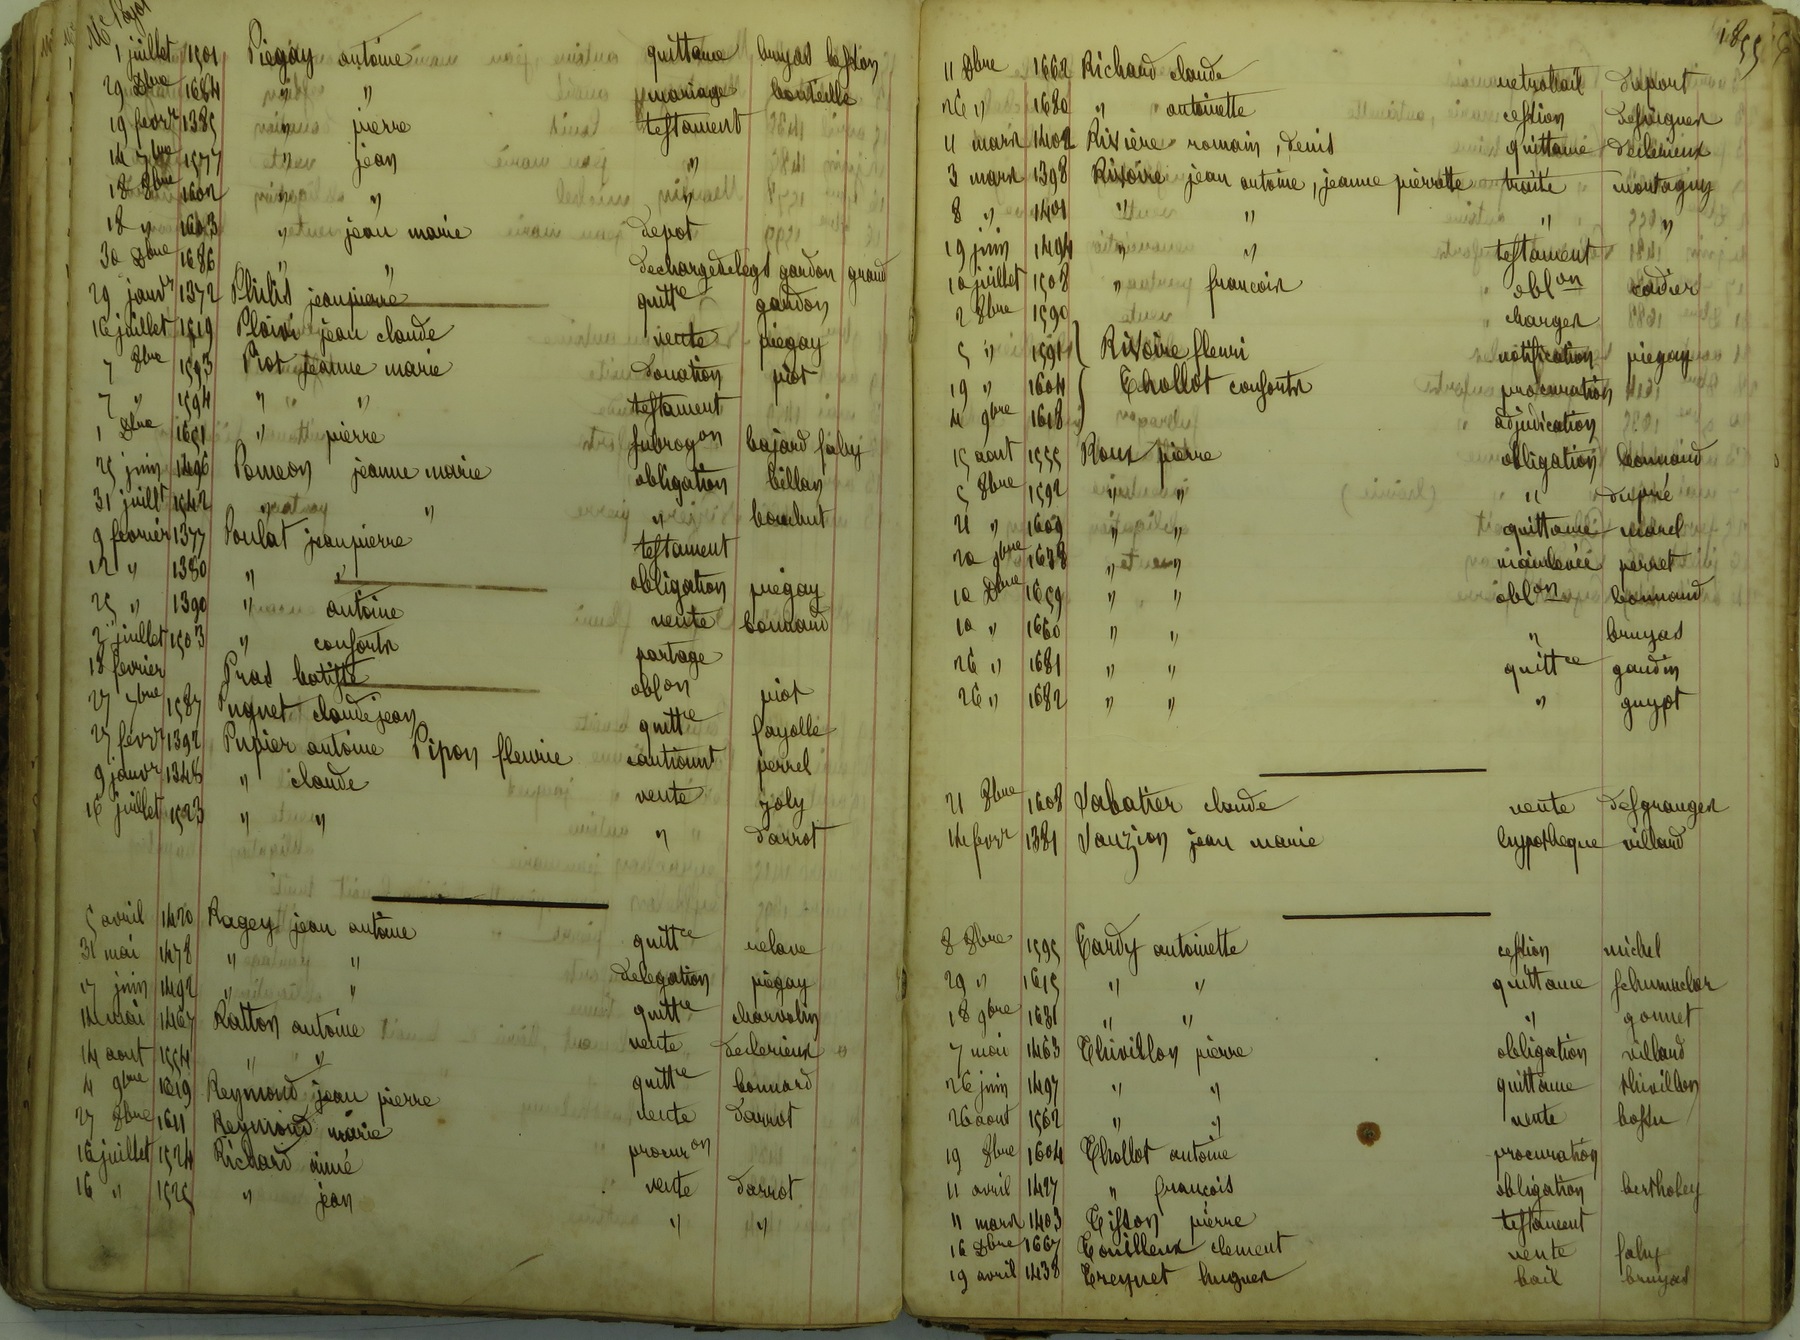 Me Pojot
1 juillet 1501 Piegay antoine quittance bruyas bastion
29 Dbre 1684 " " mariage bouteille
19 fevrr 1385 " pierre testament
14 7bre 1577 " jean "
18 8bre 1602 " " "
18 " 1603 " jean marie depot
30 Dbre 1686 " " dechargedelegs gardon grand
29 janvr 1372 Philis jeanpierre quittce gardon
16 juillet 1519 jean claude vente piegay
7 8bre 1593 Piot jeanne marie donation piot
7 " 1594 " " testament
1 Dbre 1651 " pierre subrogon bajard faby
25 juin 1496 Pomeon jeanne marie obligation billan
31 juillt 1542 " " "
9 fevrier 1377 Poulat jeanpierre testament
12 " 1380 " " obligation piegay
25 " 1390 " antoine vente bonnard
2 juillet 1503 " consorts partage
18 fevrier Pras batiste oblon piot
27 7bre 1587 Puquet claudejean quittce fayolle
27 fevrr 1392 Pupier antoine Pipon fleurie cautionnt perrel
9 janvr 1348 " claude vente joly
16 juillet 1523 " " " darrot
5 avril 1420 Ragey jean antoine quittce velave
31 mai 1478 " " delegation piegay
17 juin 1492 " " quittce charvolin
14 mai 1467 Ratton antoine vente declerieux
14 aout 1554 " " quittce bonnard
4 9bre 1619 Reymond jean pierre vente darrot
27 8bre 1611 Reymond marie procuron
16 juillet 1524 Richard aimé vente darrot
16 " 1525 " jean " "
1855
11 Dbre 1662 Richard claude dupont
26 " 1680 " antoinette cession
11 mars 1402 Rivière romain, denis quittance declerieux
3 mars 1398 Rivoire jean antoine, jeanne pierrette traité montagny
8 " 1401 " " " "
19 juin 1494 " " testament
10 juillet 1508 " francois oblon cadier
2 8bre 1590 charges
5 " 1591 Rivoire fleuri notification piegay
19 " 1604 Thollot consorts procuration
4 9bre 1618 adjudication
15 aout 1555 Roux pierre obligation bonnard
5 8bre 1592 " " " dupré
21 " 1609 " " quittance morel
20 9bre 1638 " " mainlevée perret
10 Dbre 1659 " " oblon bonnard
10 " 1660 " " " bruyas
26 " 1681 " " quittce gaudin
26 " 1682 " " " guyot
21 8bre 1608 Sabatier claude vente desgranges
14 fevrr 1381 Sauzion jean marie hypotheque villard
8 8bre 1595 Tardy antoinette cession michel
29 " 1615 " " quittance schumacher
18 9bre 1631 " " " gonnet
7 mai 1463 Thivillon pierre obligation villard
26 juin 1497 " " quittance thivillon
26 aout 1562 " " vente bossu
19 8bre 1604 Thollot antoine procuration
11 avril 1427 " françois obligation bertholey
11 mars 1403 Tisson pierre testament
16 Dbre 1667 Touilleux clement vente faby
19 avril 1438 Treynet hugues bail bruyas